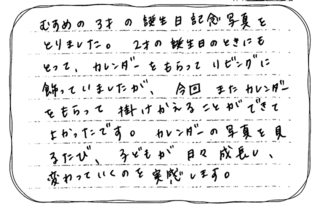 むすめの3才の誕生日記念写真を
とりました。2才の誕生日のときにも
とって、カレンダーをもらってリビングに
飾っていましたが、今回またカレンダー
をもらって掛けかえることができて
よかったです。カレンダーの写真を見
るたび、子どもが日々成長し、
変わっていくのを実感します。